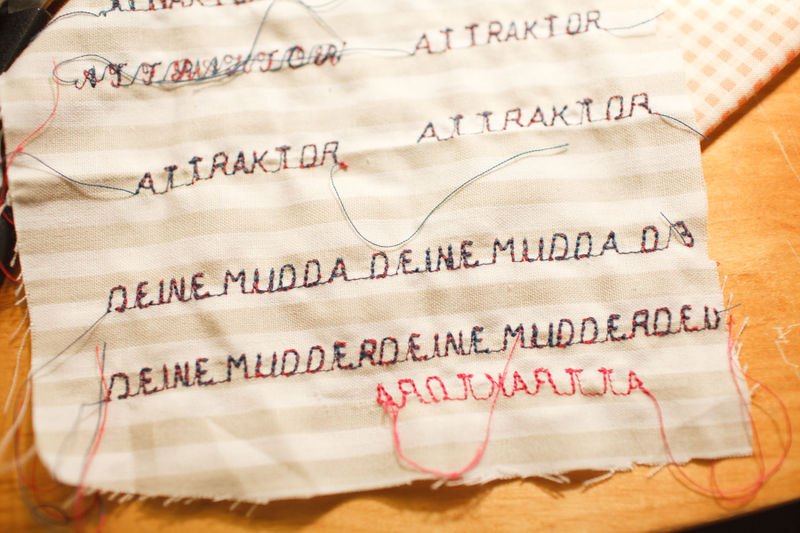 ATTRAKTOR
ATTRAKTOR ATTRAKTOR
ATTRAKTOR ATTRAKTOR
DEINE MUDDA DEINE MUDDA D
DEINE MUDDERDEINE MUDDERDED
ATTRAKTORA